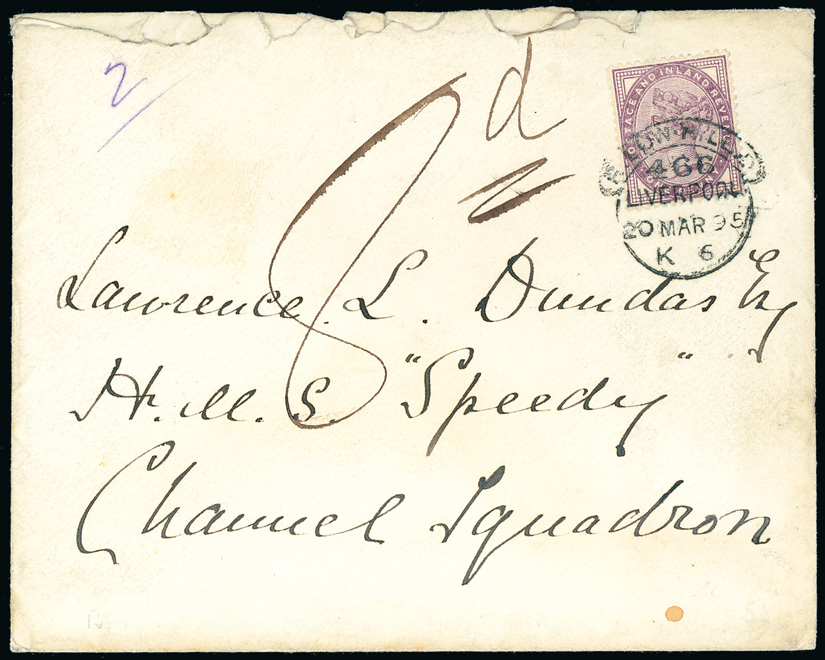 2
8d
POSTAGE AND INLAND REVENUE
ONE PENNY
BROWNLOW HILL B.O
466
LIVERPOOL
20 MAR 95
K 6
Lawrence. L. Dundas Esq
H. M. S. "Speedy"
Channel Squadron